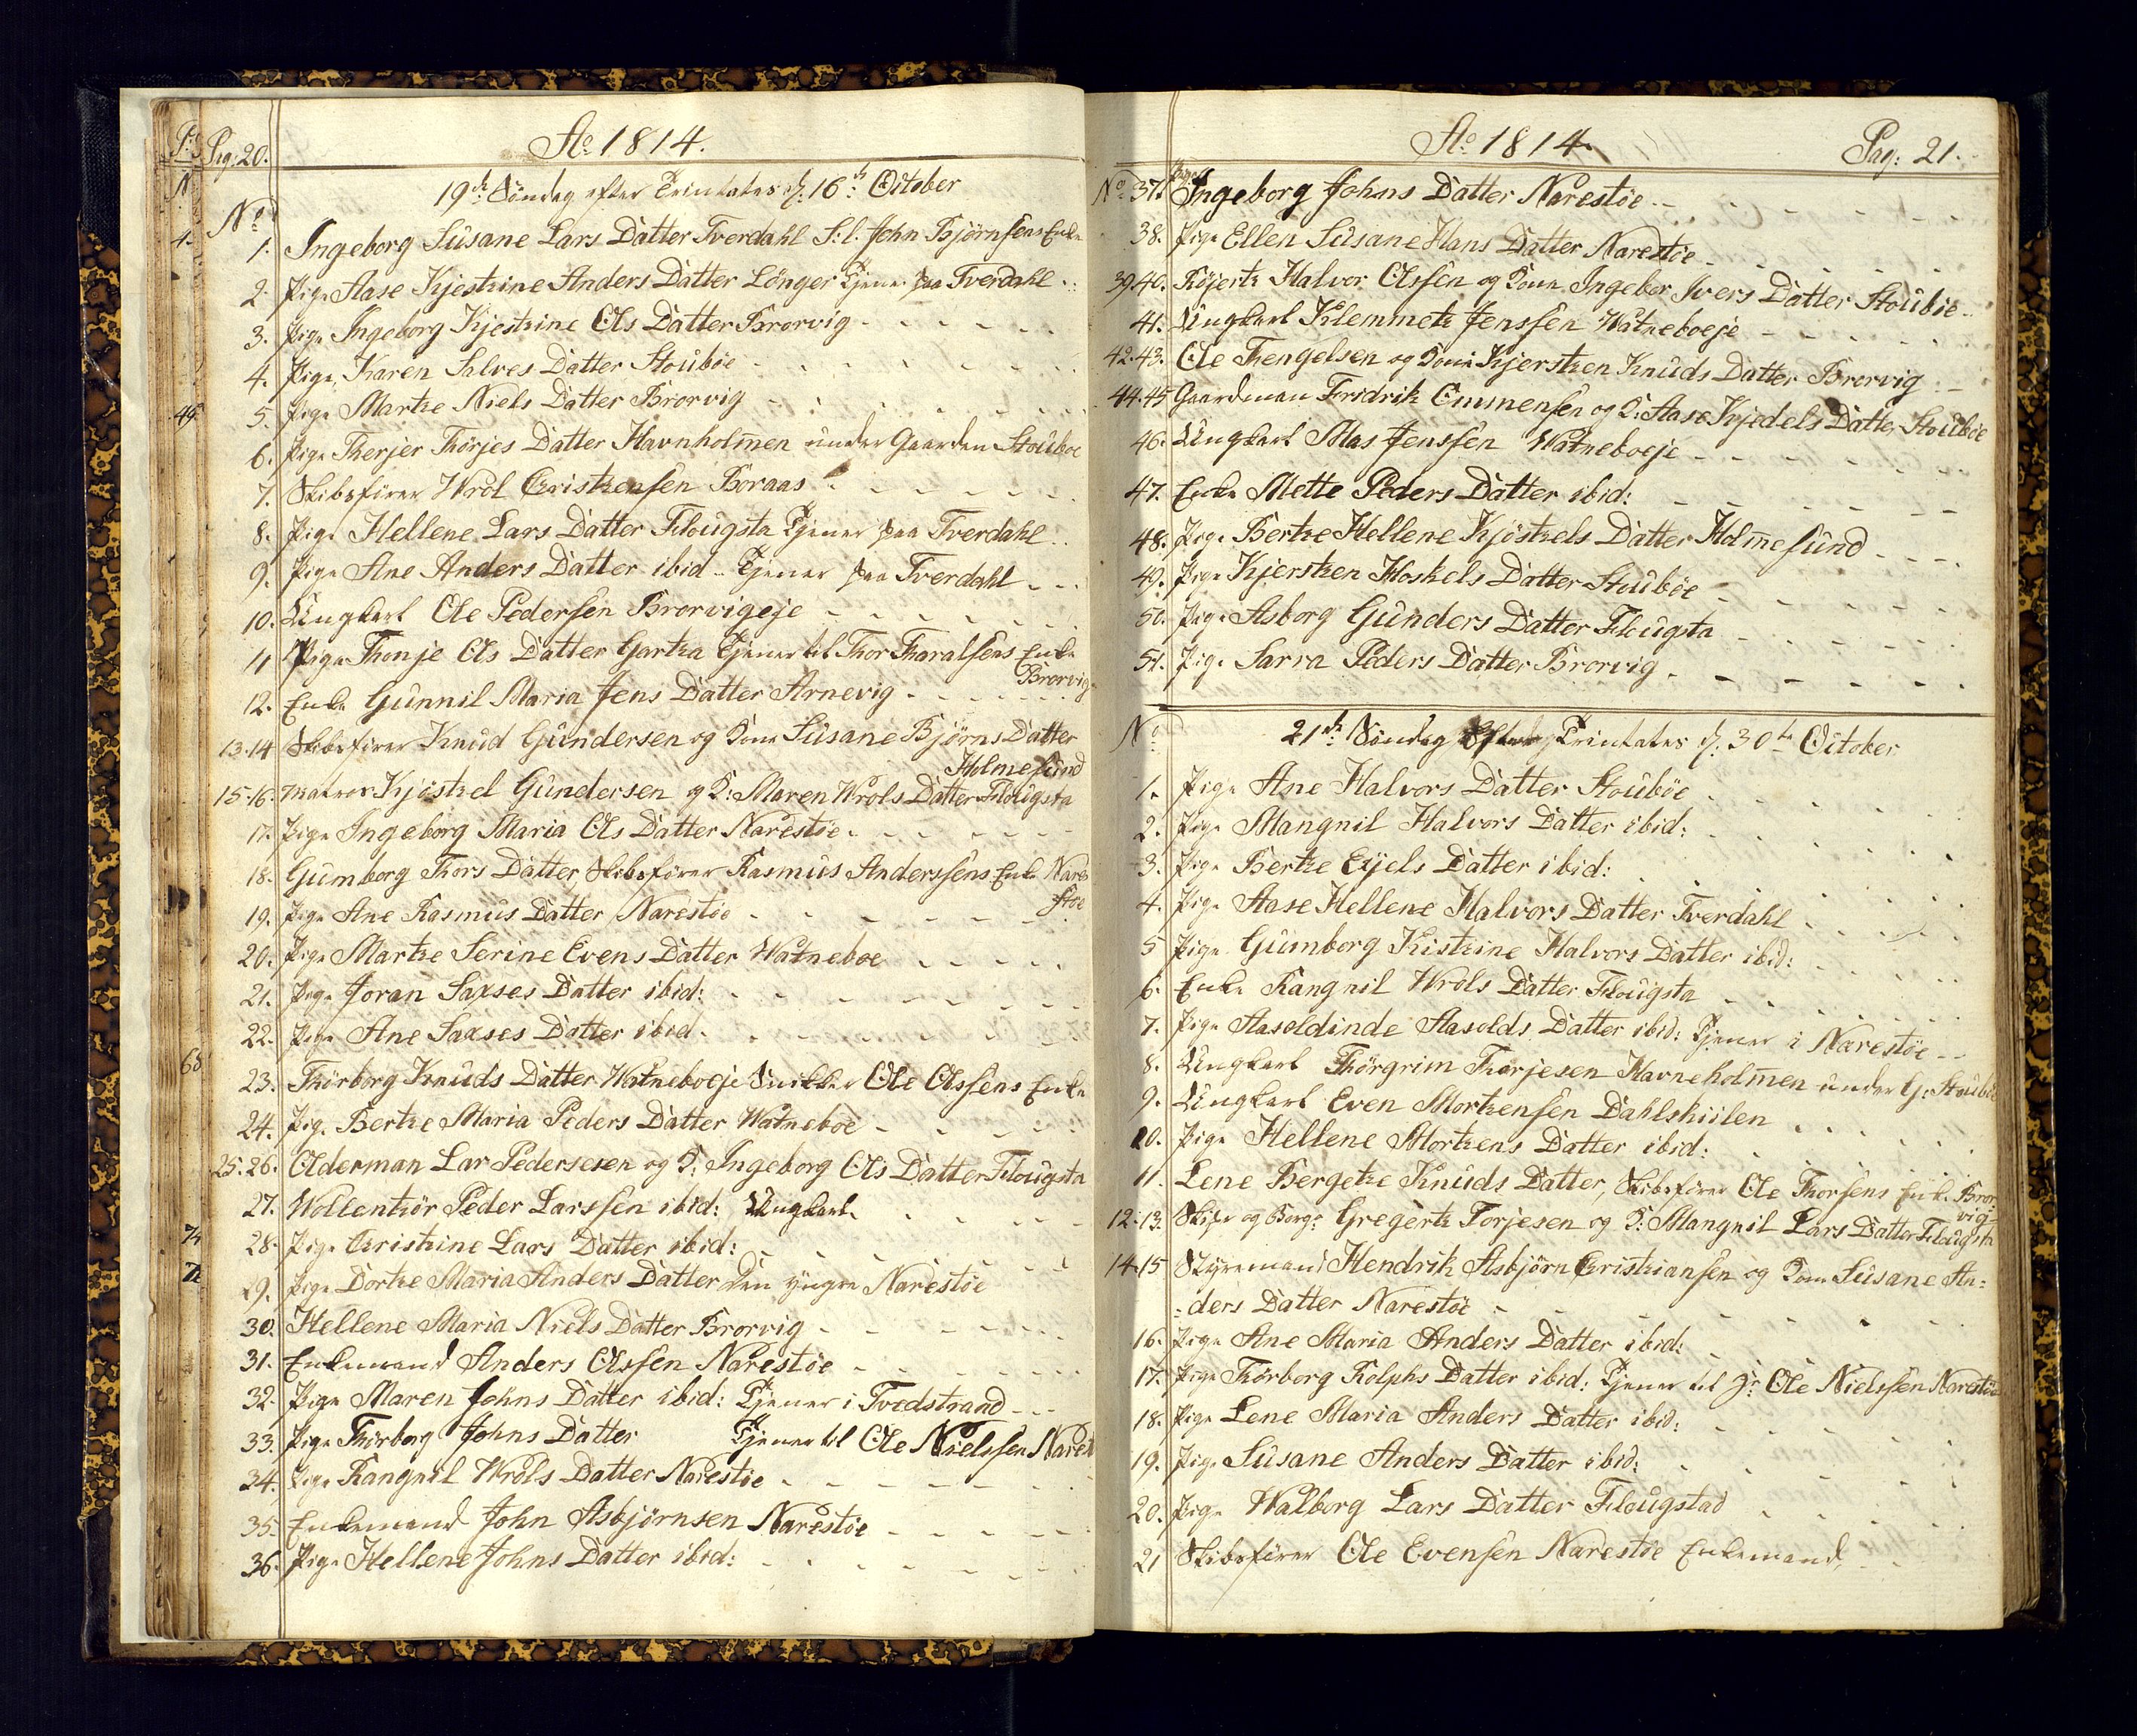 Pag: 20.
Ao 1814.
19de Söndag efter Trinitates d: 16de October
No
1. Ingeborg Susane Lars Datter Tverdahl S:l. John Bjørnsens Enke
2. Pige Aase Kjestine Anders Datter Lönger Tjener paa Tverdahl
3. Pige Ingeborg Kjestine Ols Datter Brorvig
4. Pige Karen Salves Datter Stouböe
5. Pige Marthe Niels Datter Brorvig
6. Pige Therjer Thörjes Datter Havnholmen under Gaarden Stouboe
7. Skibsfører Wrol Christensen Boraas
8. Pige Hellene Lars Datter Flougsta Tjener paa Tverdahl
9. Pige Ane Anders Datter ibid Tjener paa Tverdahl
10. Ungkarl Ole Pedersen Brorvigeje
11 Pige Thonje Ols Datter Gartha Tjener til Thor Tharalsens Enke
Brorvig
12. Enke Gunnil Maria Jens Datter Arnevig
13-14 Skibsfører Knud Gundersen og Kone Susane Bjørns Datter
Holmesund
15-16. Matros Kjöstel Gundersen og K: Maren Wrols Datter Flougsta
17. Pige Ingeborg Maria Ols Datter Narestöe
18. Gumborg Thors Datter, Skibsfører Rasmus Anderssens Enke Nare
stöe
19. Pige Ane Rasmus Datter Narestöe
20. Pige Marthe Serine Evens Datter Watneboe
21. Pige Joran Saxses Datter ibid:
22. Pige Ane Saxses Datter ibid.
23. Thörborg Knuds Datter Watneboeje Snekker Ole Olssens Enke
24. Pige Berthe Maria Peders Datter Watneboe
25.26. Olderman Lar Pedersesen og K: Ingeborg Ols Datter Flougsta
27. Wollentör Peder Larssen ibid: Ungkarl
28. Pige Christine Lars Datter ibid:
29. Pige Dorthe Maria Anders Datter den yngre Narestöe
30. Hellene Maria Niels Datter Brorvig
31. Enkemand Anders Olssen Narestöe
32. Pige Maren Johns Datter ibid: Tjener i Tvedstrand
33. Pige Thörborg Johns Datter Tjener til Ole Nielssen Narest
34. Pige Rangnil Wrols Datter Narestöe
35. Enkemand John Asbjørnsen Narestöe
36. Pige Hellene Johns Datter ibid:
Ao 1814.
Pag: 21.
No 37. Pige Ingeborg Johns Datter Narestöe
38. Pige Ellen Susane Hans Datter Narestöe
39.40. Röjert Halvor Olssen og Kone Ingebor Ivers Datter Stouböe
41. Ungkarl Klemmet Jenssen Watneboeje
42.43. Ole Thengelsen og Kone Kjersten Knuds Datter Brorvig
44.45 Gaardman Fridrik Emmensen og K: Aase Kjedels Datter Stouböe
46. Ungkarl Mas Jenssen Watneboeje
47. Enke Mette Peders Datter ibid:
48. Pige Berthe Hellene Kjöstels Datter Holmesund
49. Pige Kjersten Hoskels Datter Stouböe
50. Pige Asborg Gunders Datter Flougsta
51. Pige Sarra Peders Datter Brorvig
No 21de Söndag Efter Trinitates d: 30te October
1. Pige Ane Halvors Datter Stouböe
2. Pige Mangnil Halvors Datter ibid:
3. Pige Berthe Eyjels Datter ibid:
4. Pige Aase Hellene Halvors Datter Tverdahl
5 Pige Gumborg Kistine Halvors Datter ibid:
6. Enke Rangnil Wrols Datter Flougsta
7. Pige Aasoldinde Aasolds Datter ibid: Tjener i Narestöe
8. Ungkarl Thörgrim Thorjesen Havneholmen under G: Stouböe
9. Ungkarl Even Mortensen Dahlskiilen
10. Pige Hellene Mortens Datter ibid:
11. Lene Bergethe Knuds Datter, Skibsfører Ole Thorsens Enke Bror
vig
12.13. Skipr og Borgr Gregert Torjesen og K: Mangnil Lars Datter Flougsta
14-15 Styremand Hendrik Asbjørn Christiansen og Kone Susane An=
=ders Datter Narestöe
16. Pige Ane Maria Anders Datter ibid:
17. Pige Thörborg Rolphs Datter ibid: Tjener til Jr Ole Nielssen Narestöe
18. Pige Lene Maria Anders Datter ibid:
19. Pige Susane Anders Datter ibid:
20. Pige Walborg Lars Datter Flougstad
21 Skibsfører Ole Evensen Narestöe Enkemand